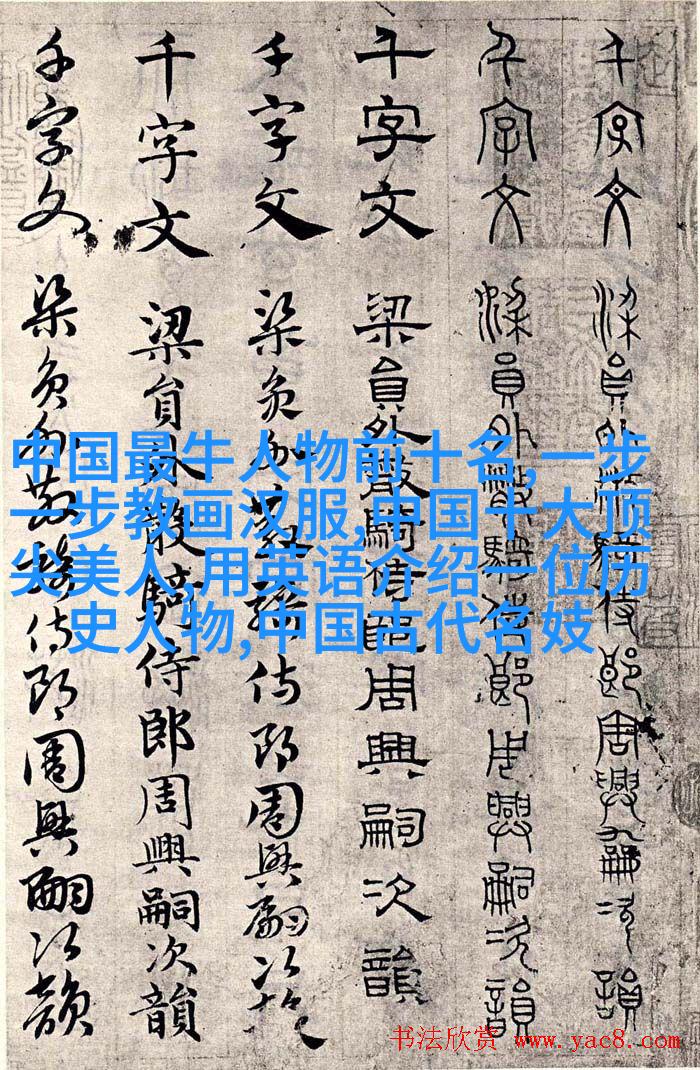 千字文 梁員外散騎侍郎周興嗣次韻
千字文 梁員外散騎侍郎周興嗣次韻
千字文 梁員外散騎侍郎周興嗣次韻
千字文 梁員外散騎侍郎周興嗣次韻
千字文 梁員外散騎侍郎周興嗣次韻
千字文 梁員外散騎侍郎周興嗣次韻
中国最牛人物前十名,一步
一步教画汉服,中国十大顶
尖美人,用英语介绍一位历
史人物,中国古代名妓
书法欣赏 www.yac8.com